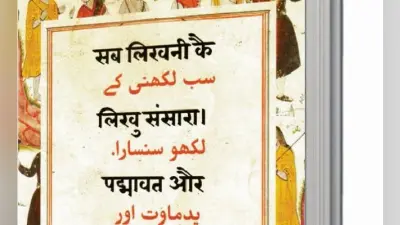 सब लिखनी कै
سب لکھنی کے
लिखु संसारा।
لکھو سنسارا.
पद्मावत और
پدماوت اور